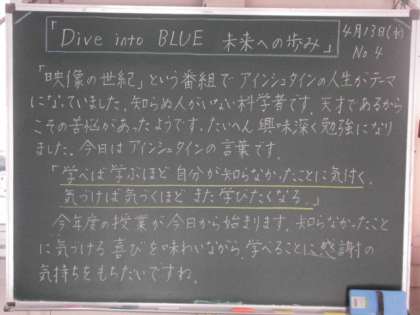 「Dive into BLUE 未来への歩み」
4月13日(水)
No.4
「映像の世紀」という番組でアインシュタインの人生がテーマ
になっていました。知らぬ人がいない科学者です。天才であるから
こその苦悩があったようです。たいへん興味深く勉強になり
ました。今日はアインシュタインの言葉です。
「学べば学ぶほど自分が知らなかったことに気付く、
気づけば気づくほどまた学びたくなる。」
今年度の授業が今日から始まります。知らなかったこと
に気づける喜びを味わいながら、学べることに感謝の
気持ちをもちたいですね。